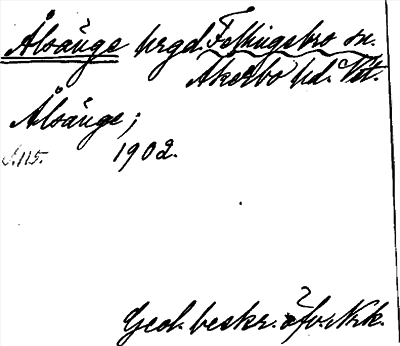 Ålsänge hrgd. Fellingsbro sn.
Åkerbo hd. Vtl.
Ålsänge;
S. 115. 1902.
Geol. beskr. öfv. Nrk.